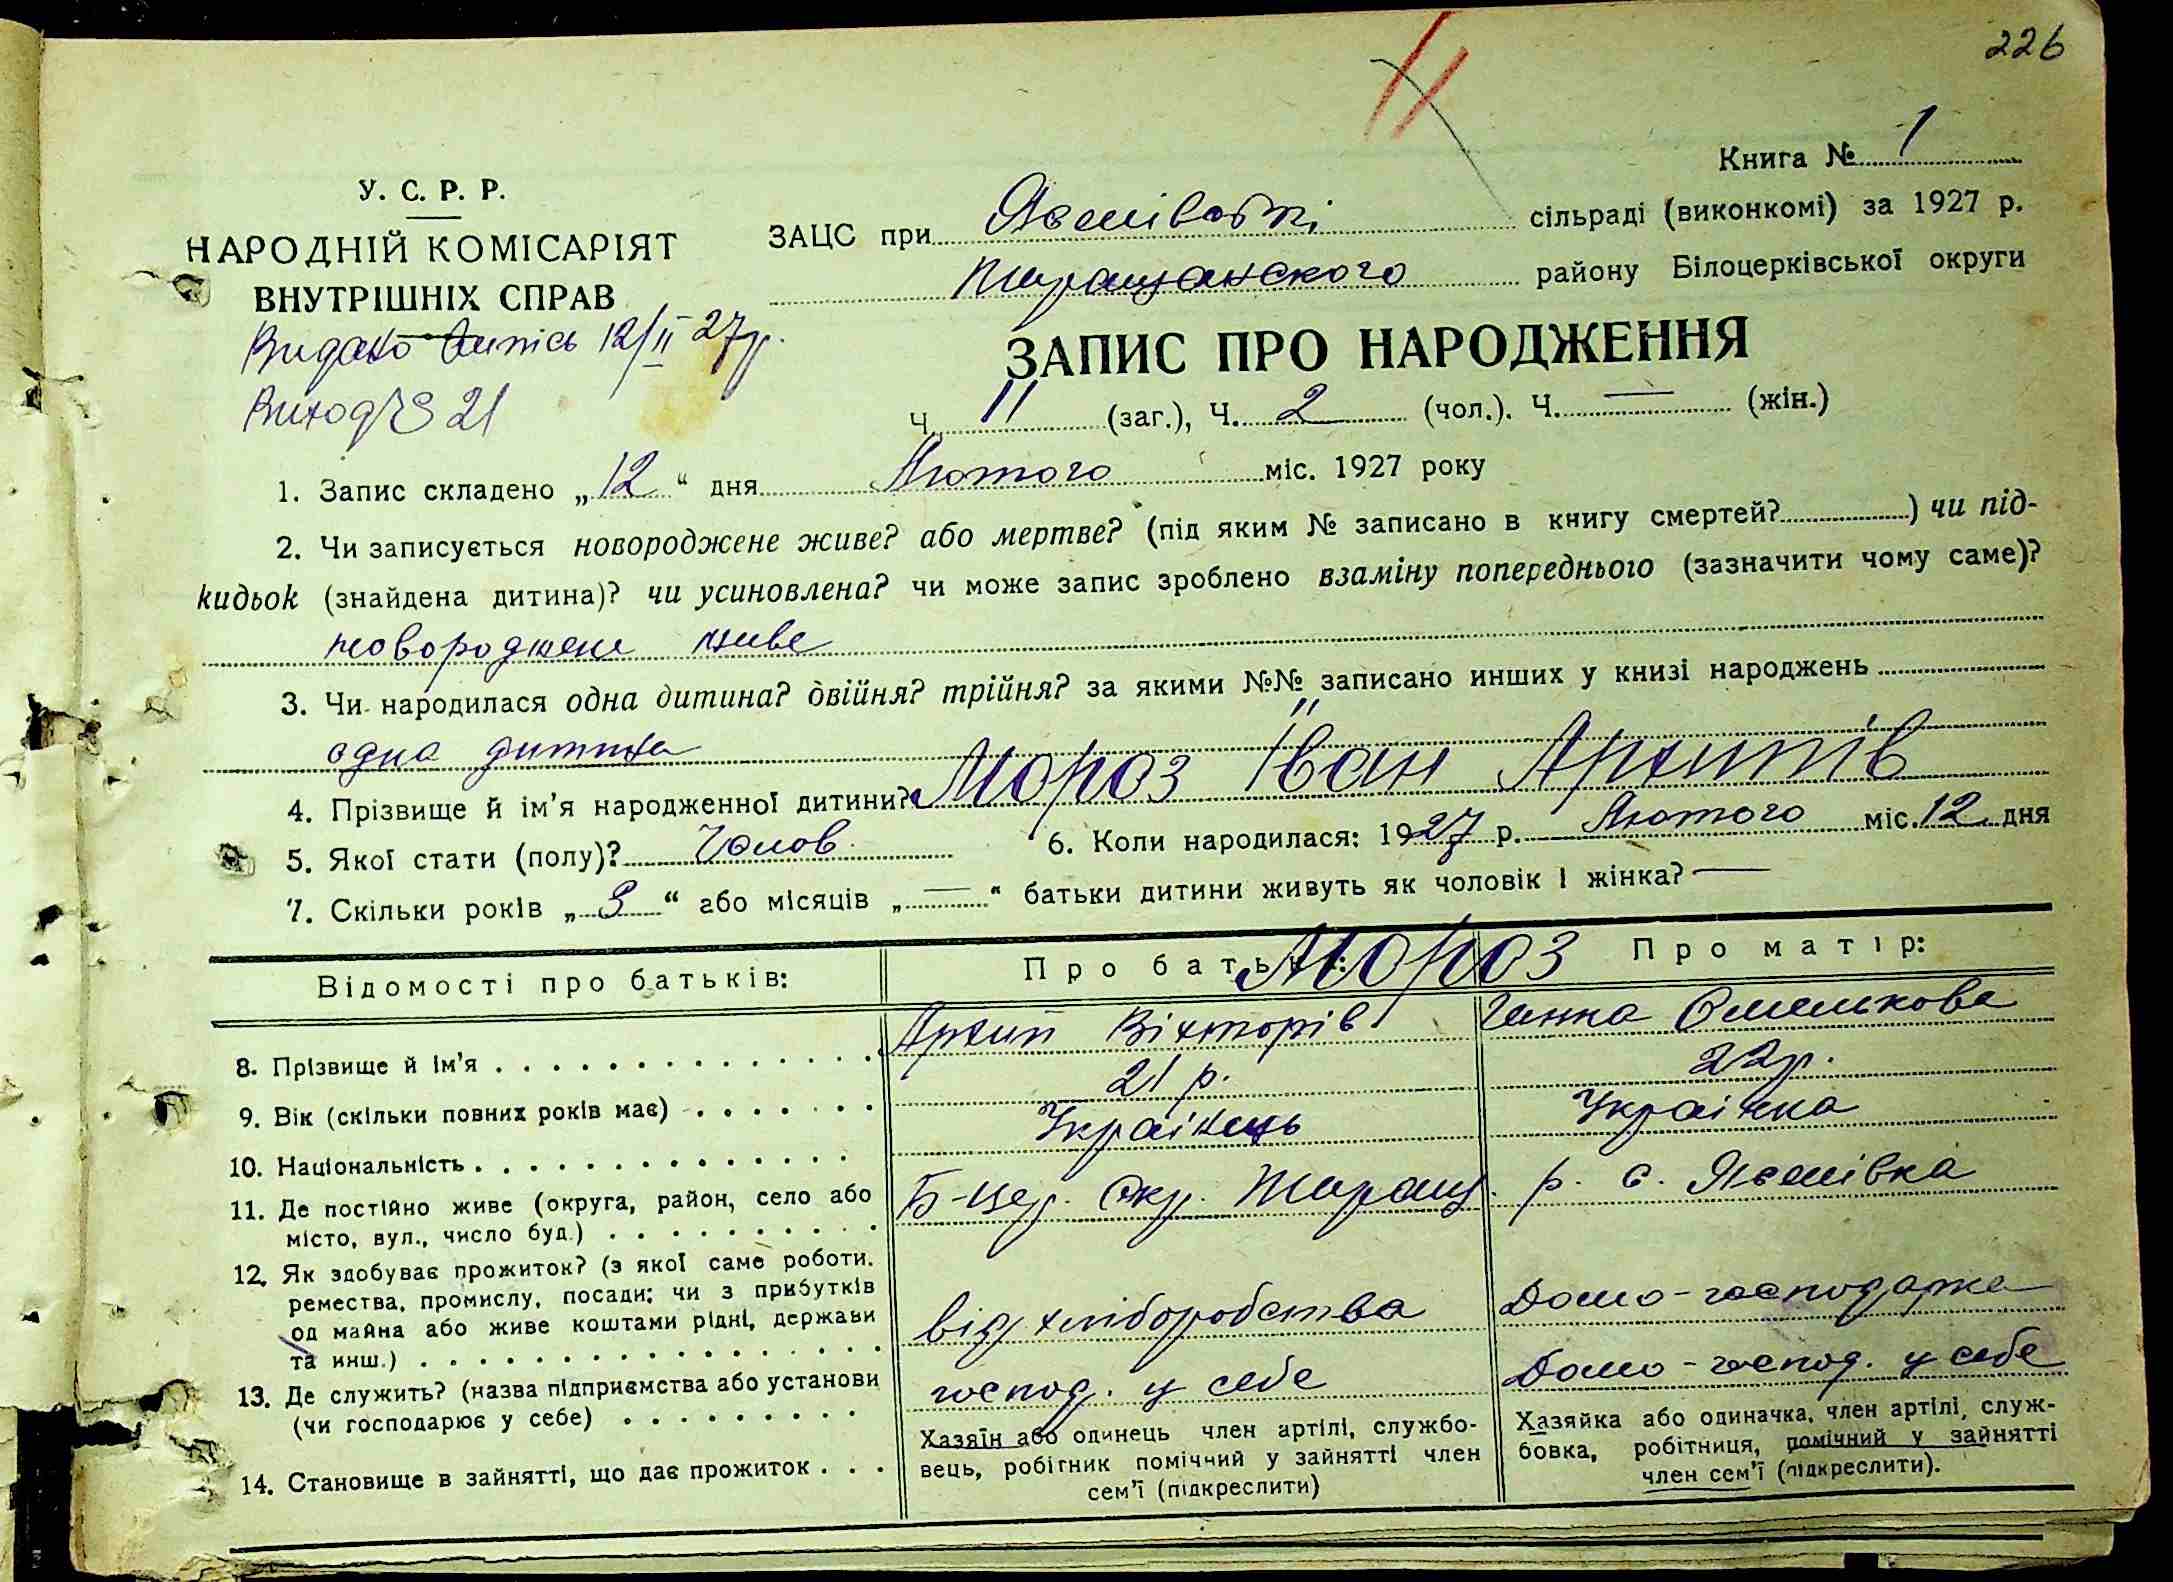 226
Книга № 1
У. С. Р. Р.
НАРОДНІЙ КОМІСАРІЯТ
ВНУТРІШНІХ СПРАВ
Видано випісь 12/II 27р.
Виход № 21
ЗАЦС при Ясеніваткі сільраді (виконкомі) за 1927 р.
Таращанского району Білоцерківської округи
ЗАПИС ПРО НАРОДЖЕННЯ
Ч. 11 (заг.), Ч. 2 (чол.). Ч. — (жін.)
1. Запис складено „12“ дня Лютого міс. 1927 року
2. Чи записується новороджене живе? або мертве? (під яким № записано в книгу смертей? ) чи під-
кидьок (знайдена дитина)? чи усиновлена? чи може запис зроблено взаміну попереднього (зазначити чому саме)?
новороджене живе
3. Чи народилася одна дитина? двійня? трійня? за якими №№ записано инших у книзі народжень
одна дитина
4. Прізвище й ім’я народженної дитини? Мороз Іван Архипів
5. Якої стати (полу)? Чолов 6. Коли народилася: 1927 р. Лютого міс. 12 дня
7. Скільки років „3“ або місяців „—“ батьки дитини живуть як чоловік і жінка? —
Відомості про батьків: Про батька: Мороз Про матір:
8. Прізвище й ім’я Архип Вікторів Ганна Омелькова
9. Вік (скільки повних років має) 21 р. 22р.
10. Національність Українець Українка
11. Де постійно живе (округа, район, село або
місто, вул., число буд.) Б-цер. окр. Таращ. р. с. Ясенівка
12. Як здобуває прожиток? (з якої саме роботи.
ремества, промислу, посади; чи з прибутків
од майна або живе коштами рідні, держави
та инш.) від хліборобства Домо-господарка
13. Де служить? (назва підприємства або установи
(чи господарює у себе) господ. у себе Домо-господ. у себе
14. Становище в зайнятті, що дає прожиток
Хазяїн або одинець член артілі, службо-
вець, робітник помічний у зайнятті член
сем’ї (підкреслити)
Хазяйка або одиначка, член артілі, служ-
бовка, робітниця, помічний у зайнятті
член сем’ї (підкреслити).